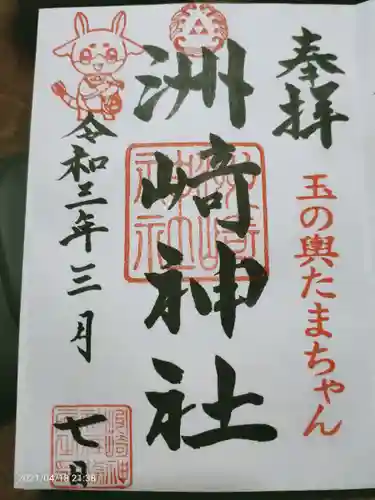 奉拝
玉の輿たまちゃん
洲崎神社
洲崎神社
令和三年三月
七日
2021/04/18 21:36